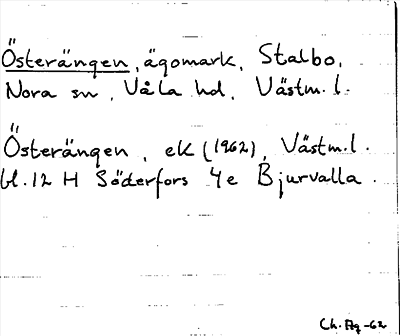 Österängen, ägomark, Stalbo,
Nora sn, Våla hd, Västm.l.
Österängen, ek (1962), Västm.l.
bl. 12 H Söderfors 4e Bjurvalla.
Ch. Ag -62